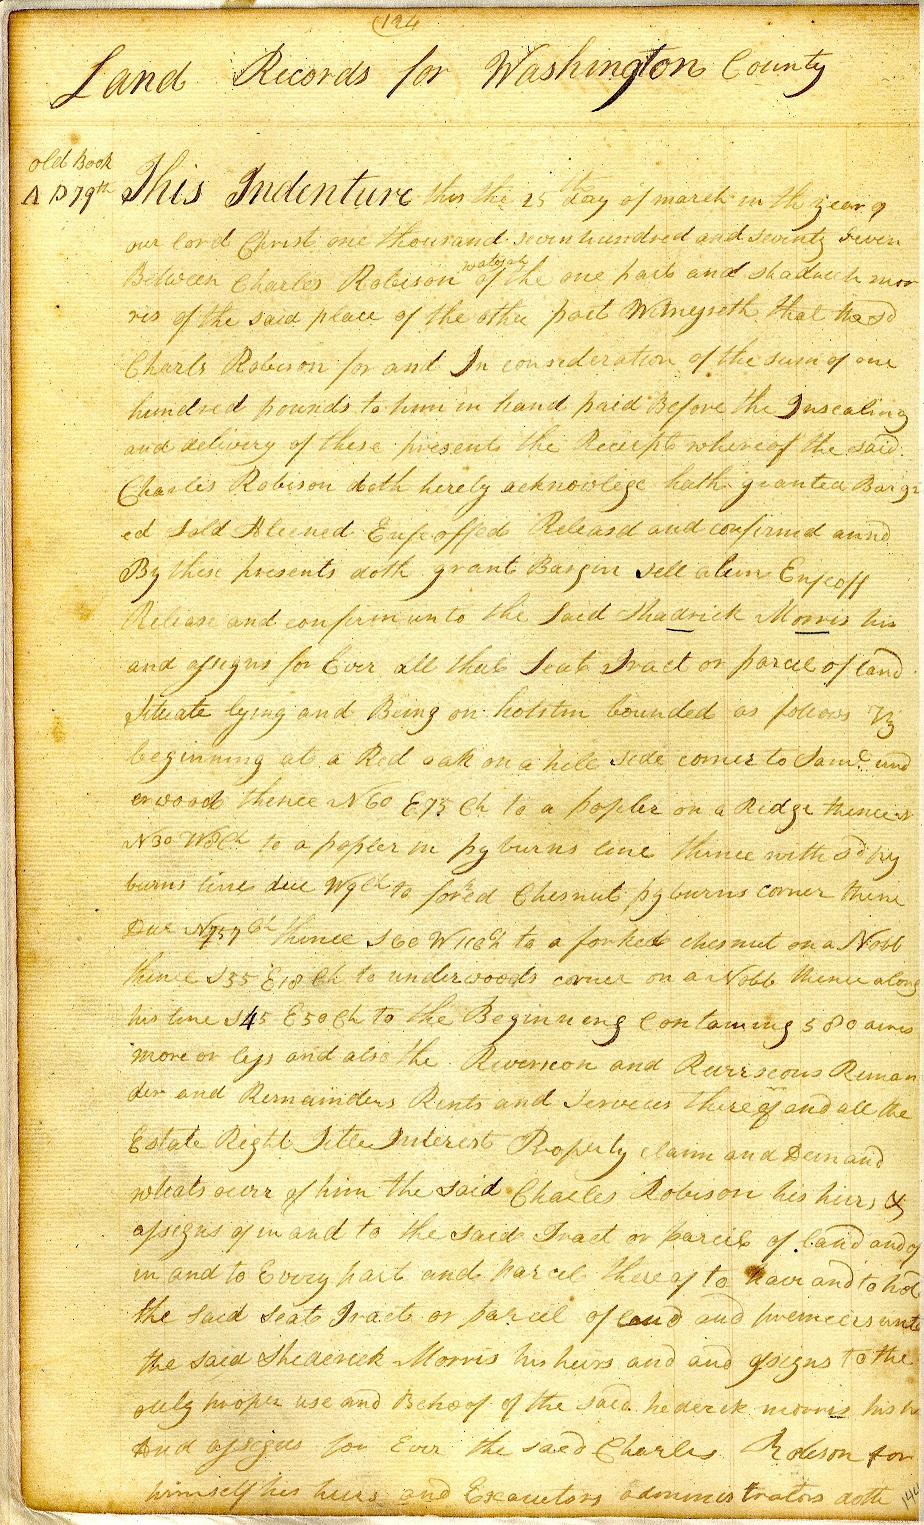 124
Land Records for Washington County
old Book
A P 79th
This Indenture this the 25th day of march in the year of
our lord Christ one thousand seven hundred and seventy seven
Between Charles Robison watogah of the one part and shadrack mor
ris of the said place of the other part Witnesseth that the sd
Charls Robison for and In consideration of the sum of one
hundred pounds to him in hand paid Before the Insealing
and delivery of these presents the Receipt whereof the said
Charles Robison doth herely acknowlege hath granted Barg
ed Sold Aleened Enfeoffed Releasd and confirmed and
By these presents doth grant Bargin sell alien Enfeoff
Release and confirm unto the Said Shadrick Morris his
and assigns for Ever all that Seat Tract or parcel of land
situate lying and Being on holston bounded as follows Vz
beginning at a Red oak on a hill side corner to Saml und
erwood thence N60 E75 Ch to a popler on a Ridge thence
N30 W8Ch to a popler in pyburns line thence with sd py
burns line due W9Ch to forked Chesnut pyburns corner thence
Due thence S60 W to a forked chesnut on a Nobb
thence S35 E18 Ch to underwoods corner on a Nobb thence along
his line S45 E50 Ch to the Beginning Containing 580 acres
more or less and also the Reversion and Reversions Reman
der and Remainders Rents and Services thereof and all the
Estate Right Title Interest Property claim and Demand
whatsoever of him the said Charles Robison his heirs &
assigns of in and to the said Tract or parcel of land and of
in and to Every part and parcel thereof to have and to hold
the said seat Tract or parcel of land and premeces unto
the said Shederick Morris his heirs and and assigns to the
only proper use and Behoof of the said hederick morris his
And assigns for Ever the said Charles Robison for
himself his heirs and Executors administrators doth
144